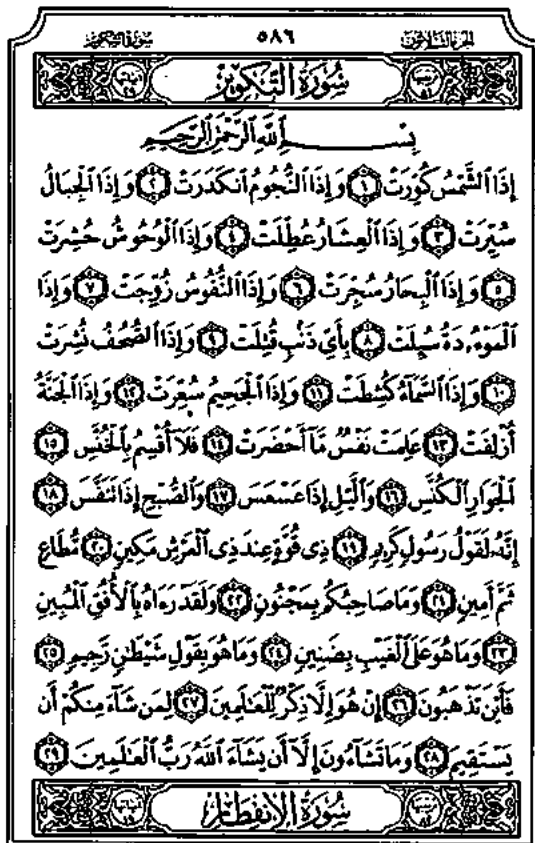 الجزء الثلاثون ٥٨٦ سورة التكوير
سُورَةُ التَّكْوِيرِ
بِسْمِ اللَّهِ الرَّحْمَٰنِ الرَّحِيمِ
إِذَا ٱلشَّمْسُ كُوِّرَتْ ١ وَإِذَا ٱلنُّجُومُ ٱنكَدَرَتْ ٢ وَإِذَا ٱلْجِبَالُ
سُيِّرَتْ ٣ وَإِذَا ٱلْعِشَارُ عُطِّلَتْ ٤ وَإِذَا ٱلْوُحُوشُ حُشِرَتْ
٥ وَإِذَا ٱلْبِحَارُ سُجِّرَتْ ٦ وَإِذَا ٱلنُّفُوسُ زُوِّجَتْ ٧ وَإِذَا
ٱلْمَوْءُۥدَةُ سُئِلَتْ ٨ بِأَيِّ ذَنۢبٍ قُتِلَتْ ٩ وَإِذَا ٱلصُّحُفُ نُشِرَتْ
١٠ وَإِذَا ٱلسَّمَآءُ كُشِطَتْ ١١ وَإِذَا ٱلْجَحِيمُ سُعِّرَتْ ١٢ وَإِذَا ٱلْجَنَّةُ
أُزْلِفَتْ ١٣ عَلِمَتْ نَفْسٌ مَّآ أَحْضَرَتْ ١٤ فَلَآ أُقْسِمُ بِٱلْخُنَّسِ ١٥
ٱلْجَوَارِ ٱلْكُنَّسِ ١٦ وَٱلَّيْلِ إِذَا عَسْعَسَ ١٧ وَٱلصُّبْحِ إِذَا تَنَفَّسَ ١٨
إِنَّهُۥ لَقَوْلُ رَسُولٍ كَرِيمٍ ١٩ ذِى قُوَّةٍ عِندَ ذِى ٱلْعَرْشِ مَكِينٍ ٢٠ مُّطَاعٍ
ثَمَّ أَمِينٍ ٢١ وَمَا صَاحِبُكُم بِمَجْنُونٍ ٢٢ وَلَقَدْ رَءَاهُ بِٱلْأُفُقِ ٱلْمُبِينِ
٢٣ وَمَا هُوَ عَلَى ٱلْغَيْبِ بِضَنِينٍ ٢٤ وَمَا هُوَ بِقَوْلِ شَيْطَٰنٍ رَّجِيمٍ ٢٥
فَأَيْنَ تَذْهَبُونَ ٢٦ إِنْ هُوَ إِلَّا ذِكْرٌ لِّلْعَٰلَمِينَ ٢٧ لِمَن شَآءَ مِنكُمْ أَن
يَسْتَقِيمَ ٢٨ وَمَا تَشَآءُونَ إِلَّآ أَن يَشَآءَ ٱللَّهُ رَبُّ ٱلْعَٰلَمِينَ ٢٩
سُورَةُ الِانفِطَارِ